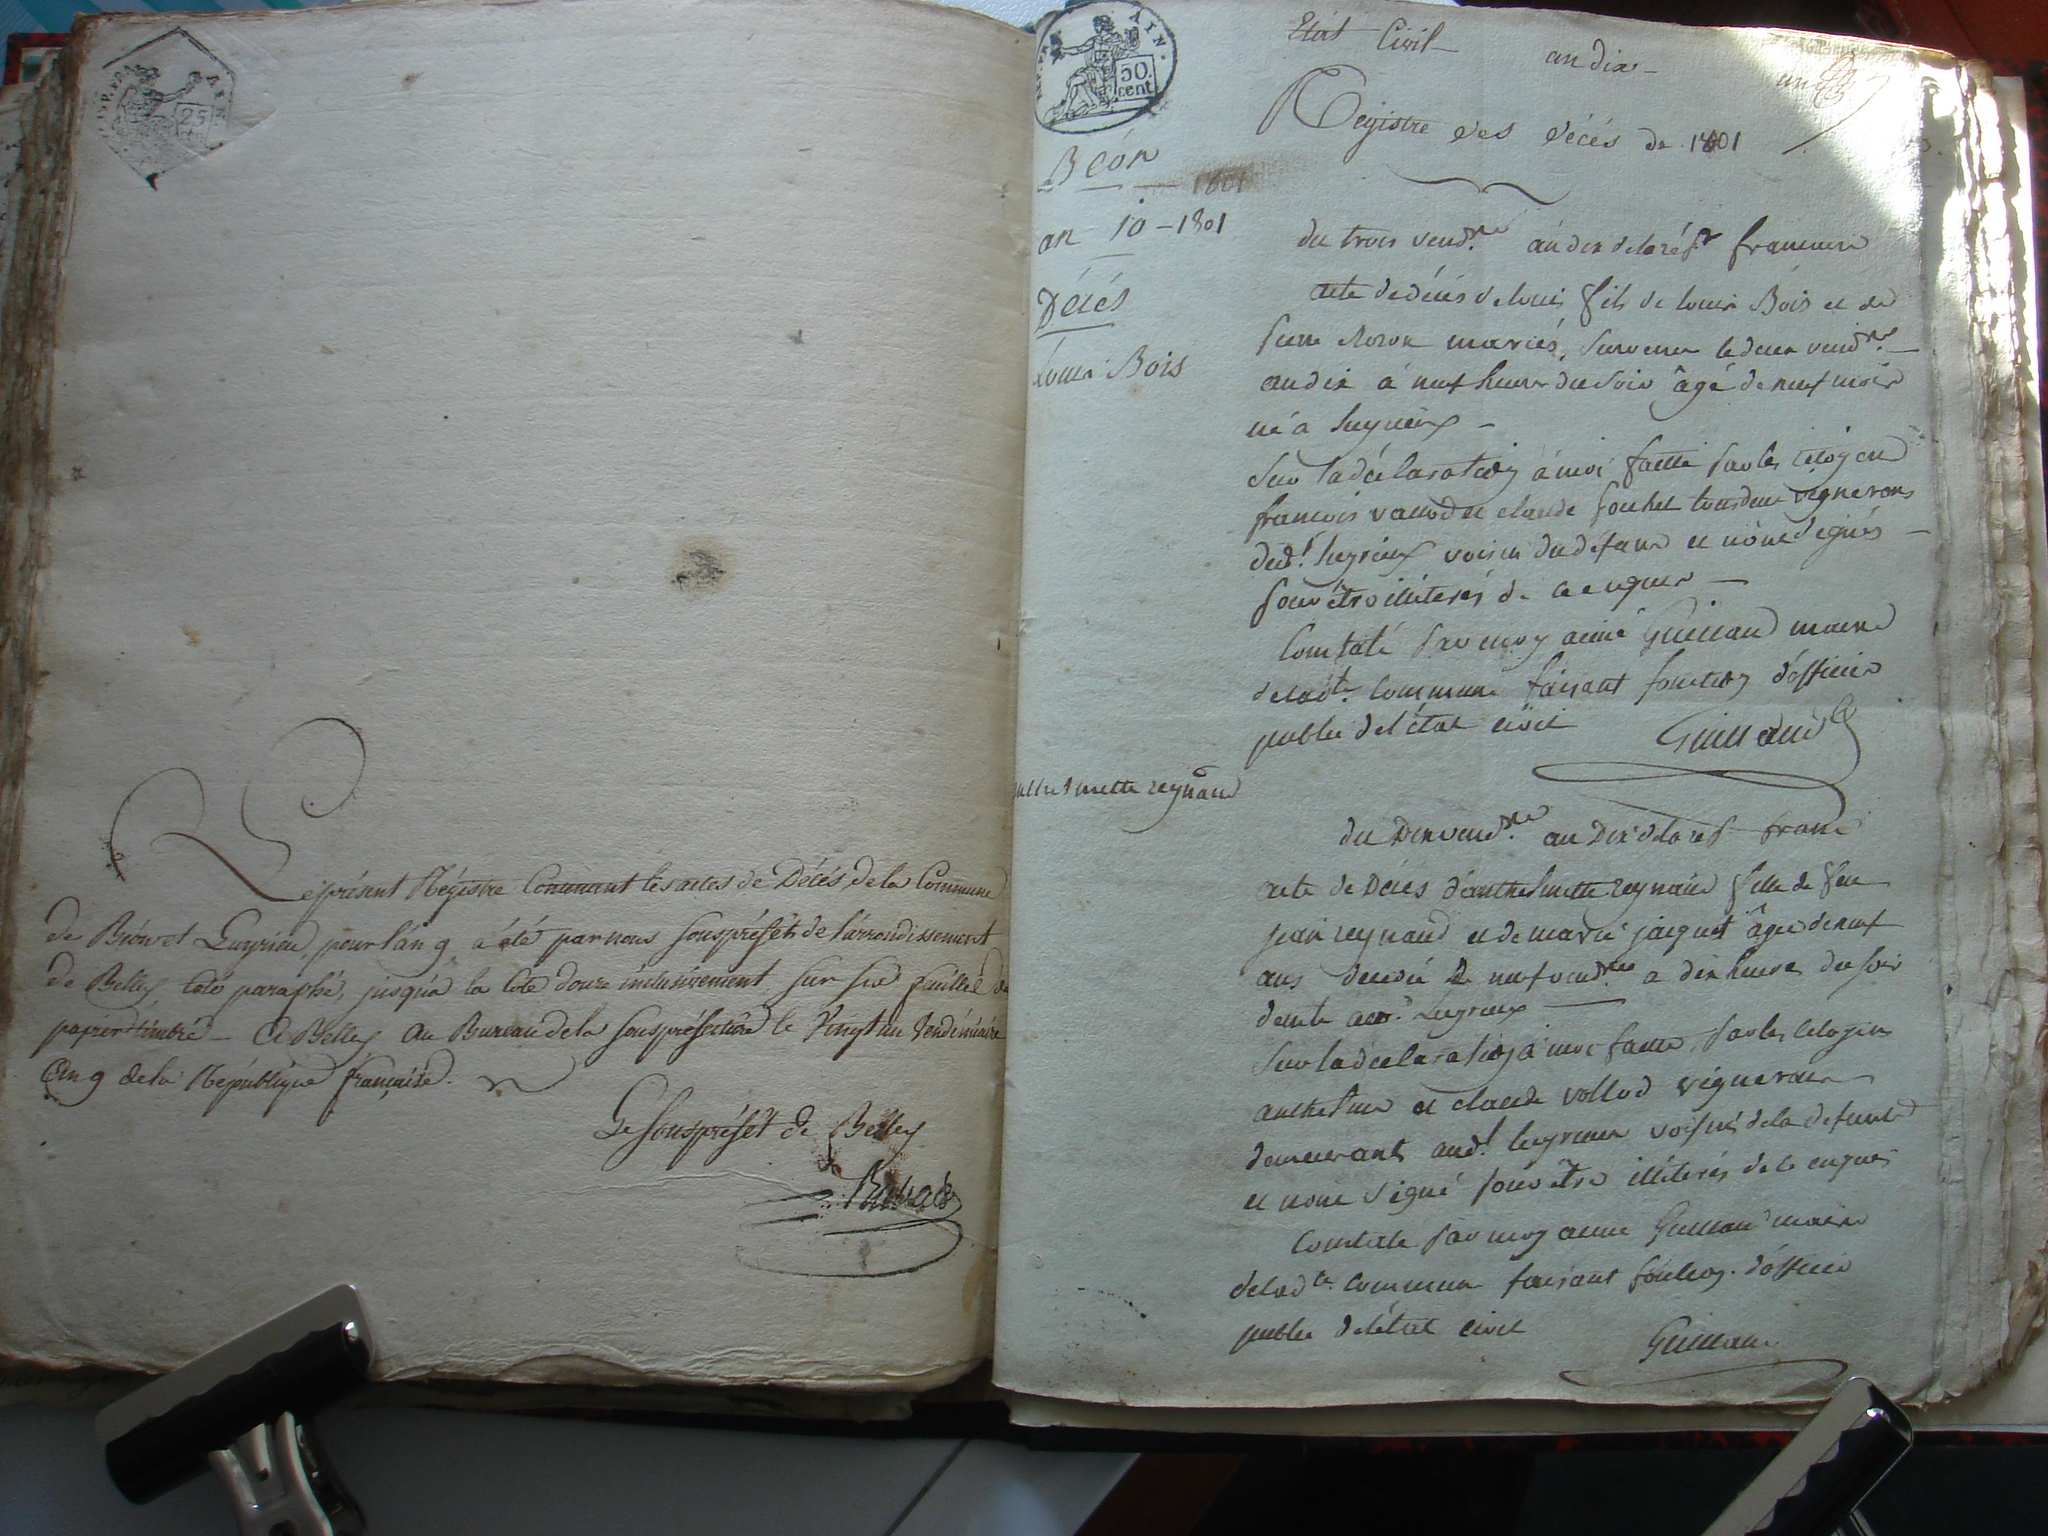 REP. FRA. AIN.
25
Le présent Régistre Contenant les actes de Décés de la Commune
de Béon et Luyrieu, pour l'an 9 a été par nous Souspréfet de l'arrondissement
de Belley, coté paraphé, jusqu'à la cote douze inclusivement sur six feuilles de
papier timbré — A Belley au Bureau de la Souspréfecture le Vingt un Vendémiaire
an 9 de la République française.
Le Souspréfet de Belley
REP. FRA. AIN.
50.
cent
Etat Civil an dix
un
Régistre des décés de 1801
Béon
1801
an 10 - 1801
Décés
Louis Bois
du trois vend.re an dix de la rép.e francaise
acte de décés de louis fils de louis Bois et de
mariés, survenu le deux vend.re
an dix à neuf heures du soir âgé de neuf mois
né a luyrieux
Sur la déclaration à moi faitte par les citoyens
francois vallod et claude fouhet tous deux vignerons
dud.t luyrieux voisin du defunt et n'ont signés
pour être illiterés de ce enquis
Constaté par moy aimé Guillaud maire
de lad.te Commune faisant fonction d'officier
public de l'état civil Guillaud
anthelmette reynaud
du Dix vend.re an Dix de la rép franc
acte de Décés d'anthelmette reynaud fille de feu
jean reynaud et de marie jacquet âgée de neuf
ans décédé le neuf vend.re a dix heures du soir
aud. Luyrieux
Sur la déclaration à moi faitte par les citoyens
anthelme et claude vollod vignerons
demeurant aud.t luyrieux voisins de la defunte
et n'ont signé pour être illiterés de ce enquis
Constaté par moy aimé Guillaud maire
de lad.te commune faisant fonction d'officier
public de l'état civil Guillaud